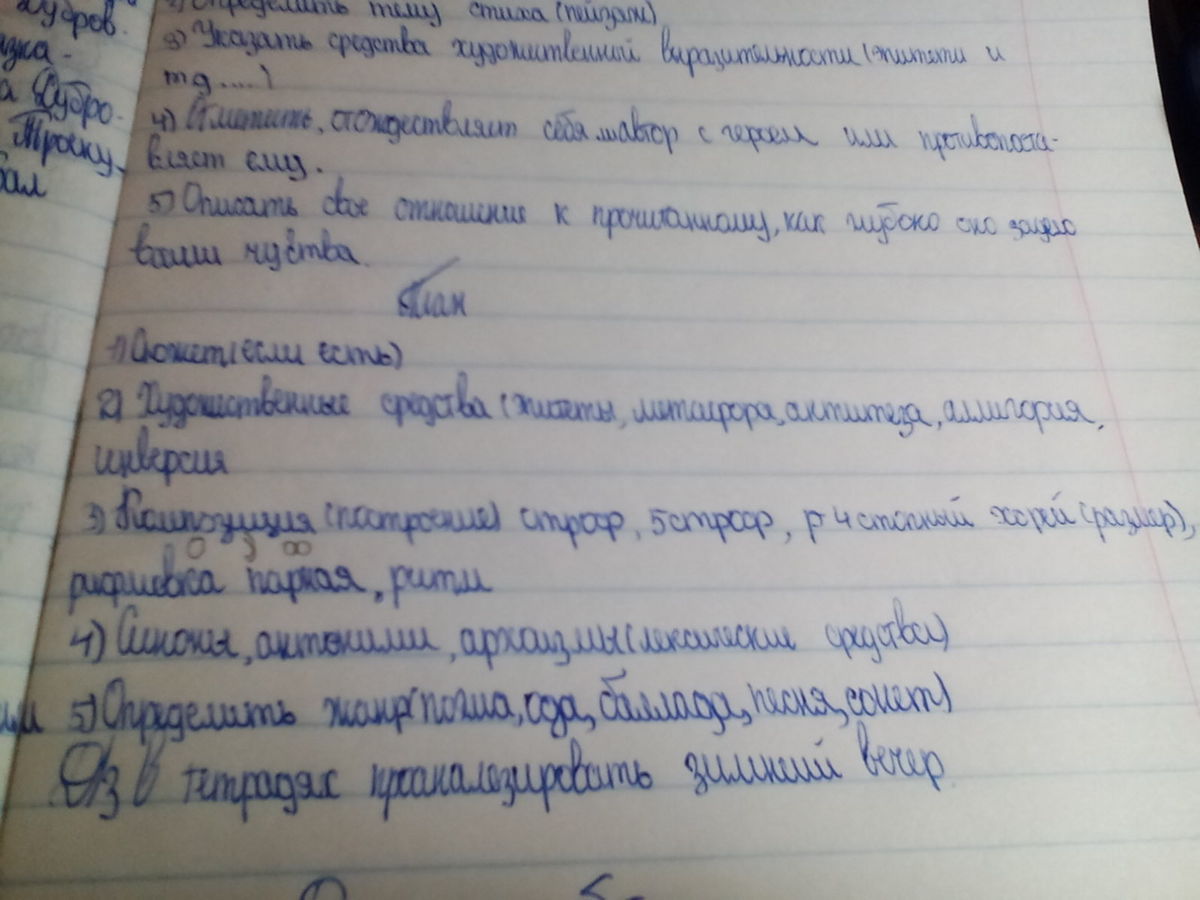 Дубров.
2) Определить тему стиха (пейзаж)
3) Указать средства художественний виразительности (эпитети и
тд.....)
4) Отметить, отождествляет себя автор с героем или противопоста-
вляет ему.
5) Описать свое отношение к прочитанному, как глубоко оно задело
ваши чуйства.
План
1) Сюжет (если есть)
2) Художественные средства (эпитеты, метафора, антитеза, аллигория,
инверсия
3) Композиция (построение) строф, 5 строф, р 4 стопный хорей (размер),
рифмовка парная, ритм
4) Синоны, антоними, архаизмы (лексические средства)
5) Определить жанр (поэма, ода, баллада, песня, сонет)
Д/з В тетрадях проанализировать зимний вечер.